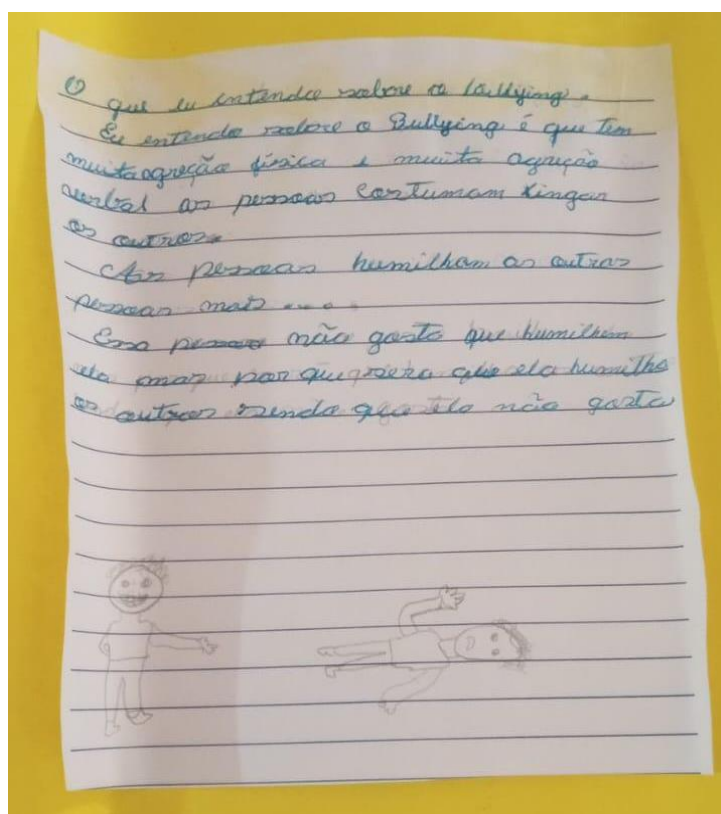 O que eu entendo sobre o bullying.
Eu entendo sobre o Bullying é que tem
muita agreção física e muita agreção
verbal as pessoas costumam xingar
os outros.
As pessoas humilham as outras
pessoas mais ....
Essa pessoa não gosta que humilhem
ela mas por que sera que ela humilha
os outros sendo que ela não gosta